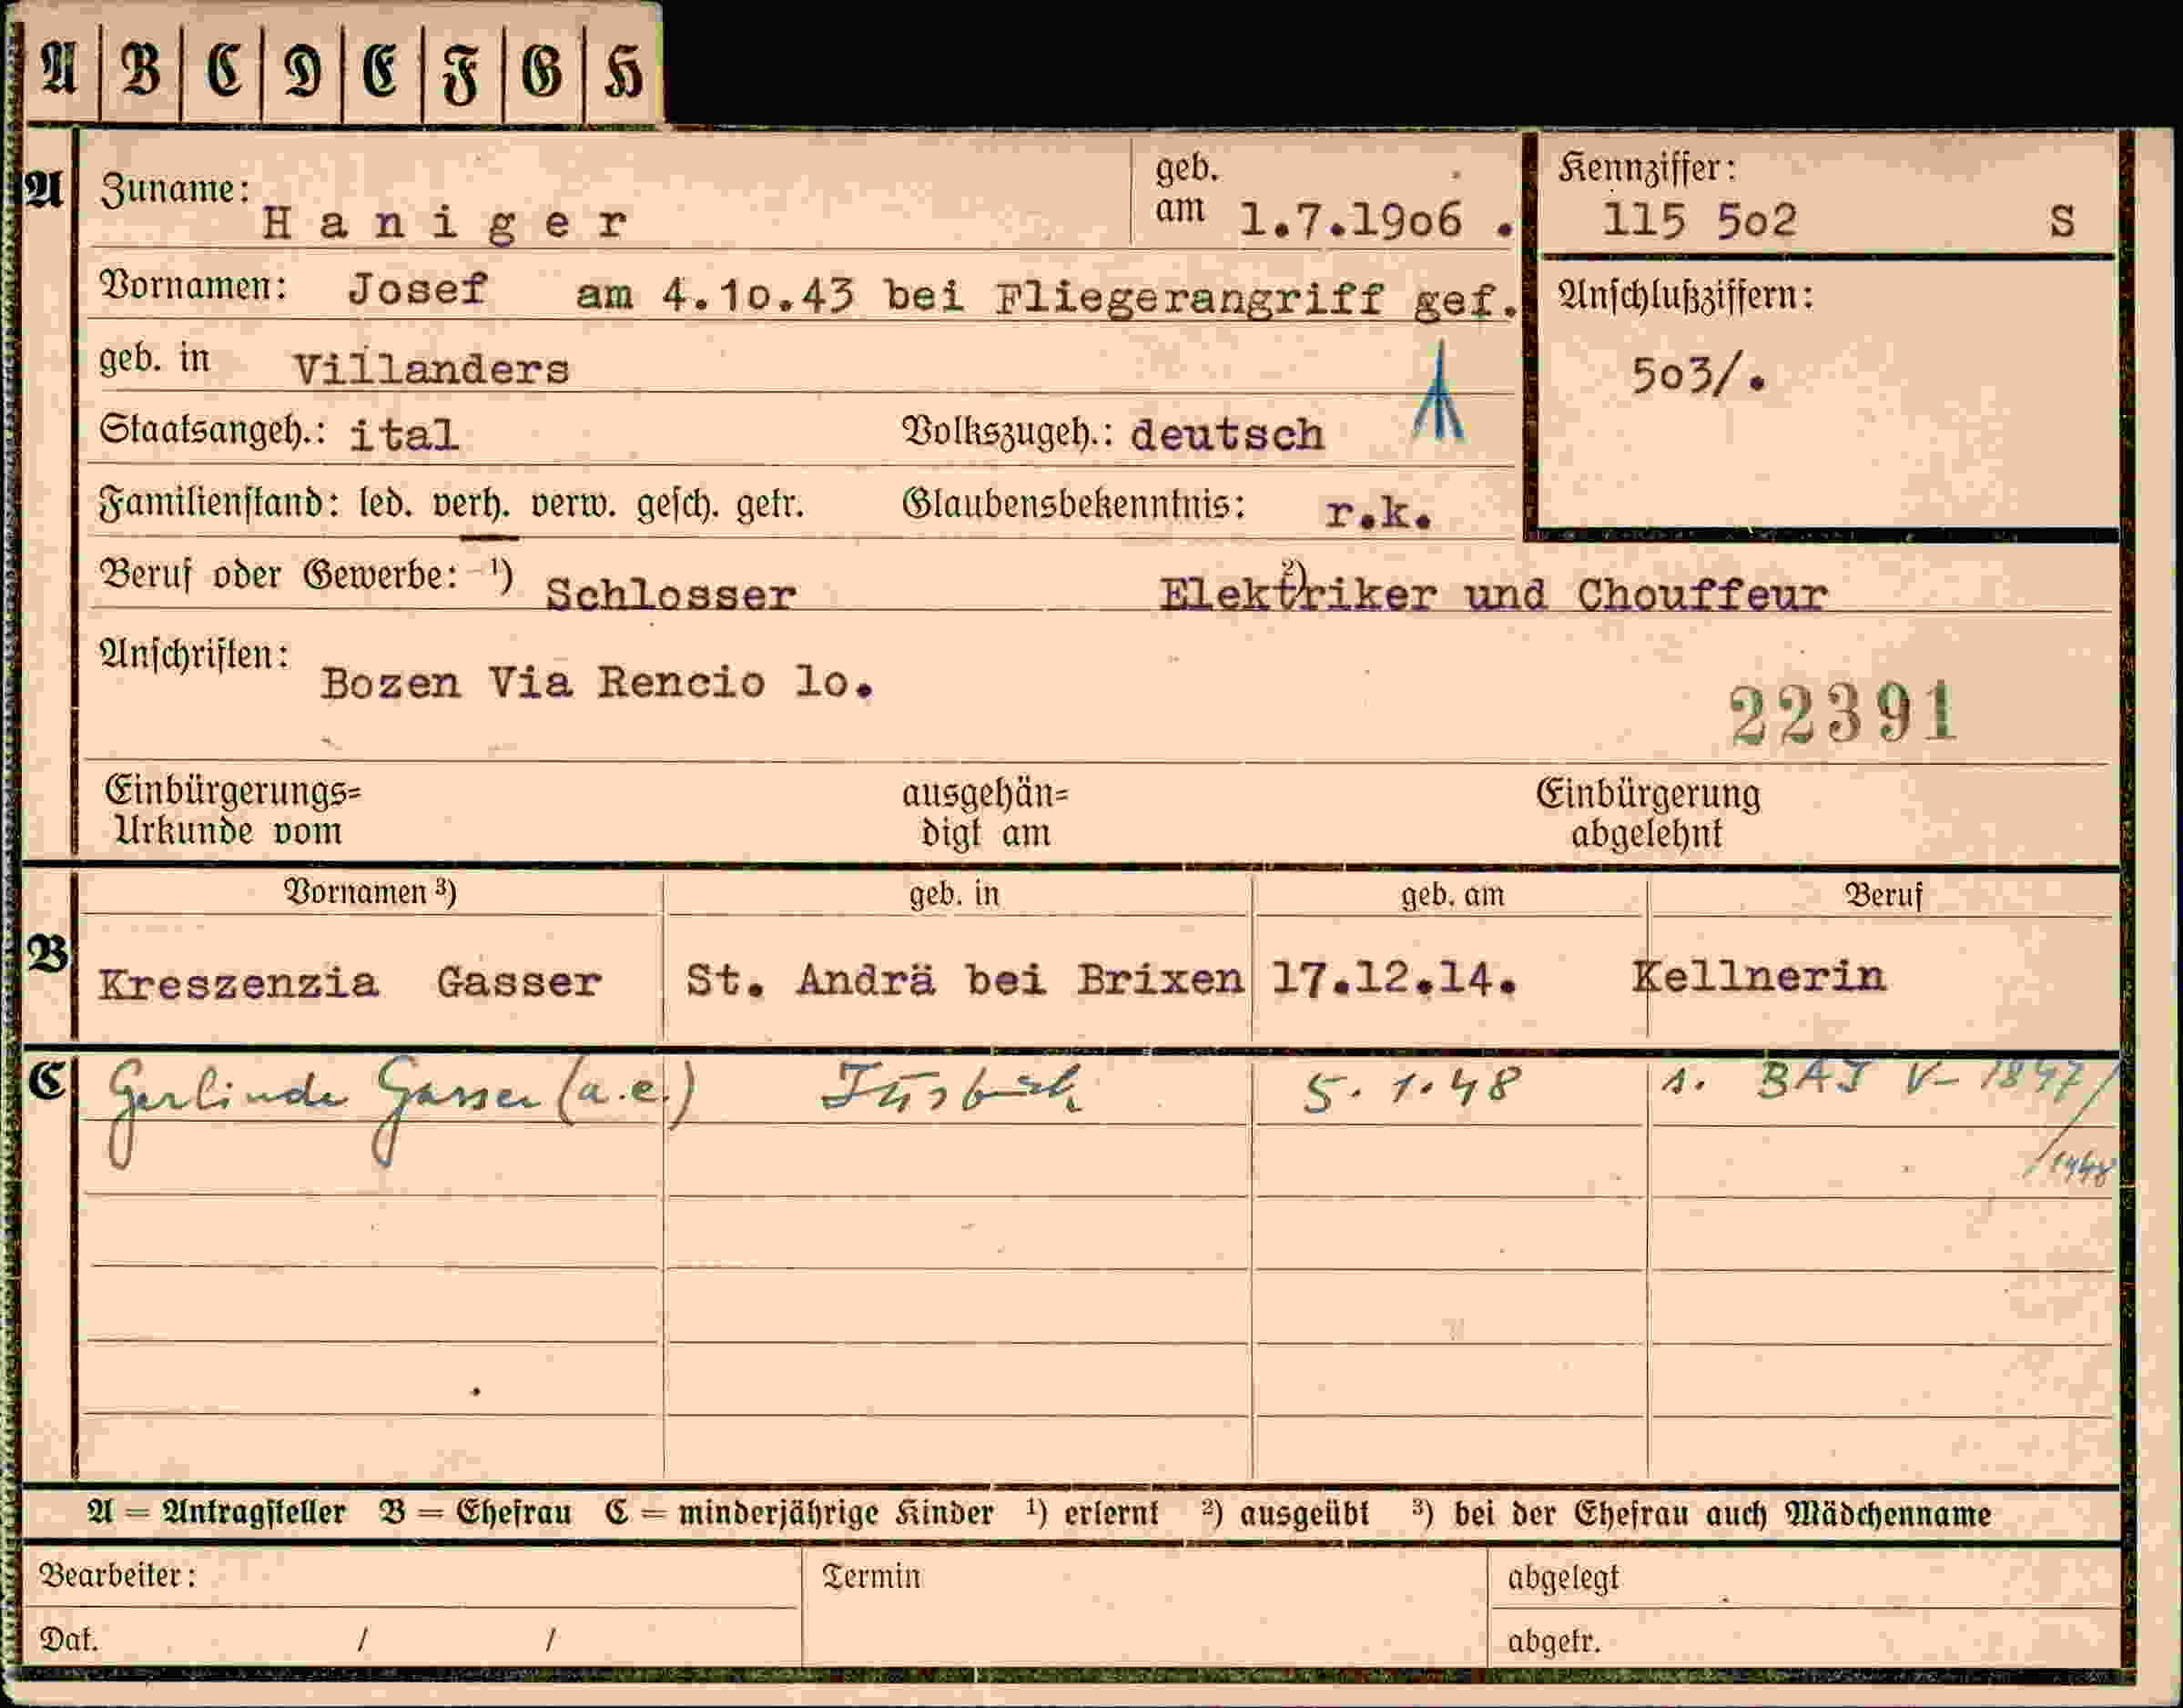 A B C D E F G H
A Zuname: Haniger geb. am 1.7.1906 . Kennziffer: 115 502 S
Vornamen: Josef am 4.10.43 bei Fliegerangriff gef. Anschlußziffern:
geb. in Villanders 503/.
Staatsangeh.: ital Volkszugeh.: deutsch
Familienstand: led. verh. verw. gesch. getr. Glaubensbekenntnis: r.k.
Beruf oder Gewerbe: 1) Schlosser 2) Elektriker und Chouffeur
Anschriften: Bozen Via Rencio 10.
22391
Einbürgerungs= ausgehän= Einbürgerung
Urkunde vom digt am abgelehnt
Vornamen 3) geb. in geb. am Beruf
B Kreszenzia Gasser St. Andrä bei Brixen 17.12.14. Kellnerin
C Gerlinde Gasser (a.e.) 5.1.48 s. V- 1847/
/1948
A = Antragsteller B = Ehefrau C = minderjährige Kinder 1) erlernt 2) ausgeübt 3) bei der Ehefrau auch Mädchenname
Bearbeiter: Termin abgelegt
Dat. / / abgetr.